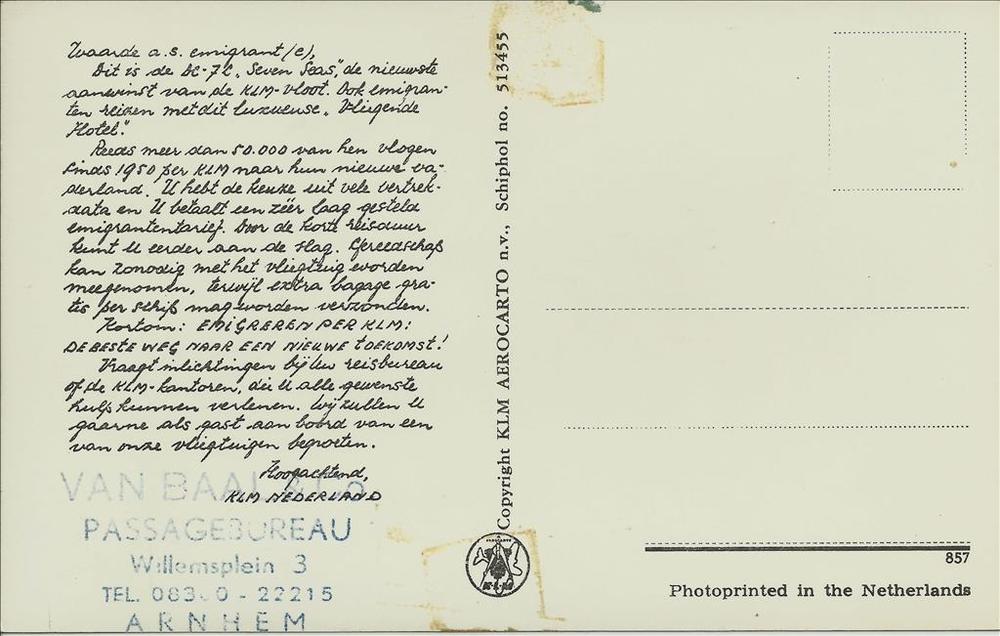 Waarde a.s. emigrant/(e),
Dit is de DC-7C „Seven Seas", de nieuwste
aanwinst van de KLM-vloot. Ook emigran-
ten reizen met dit luxueuse „Vliegende
Hotel".
Reeds meer dan 50.000 van hen vlogen
sinds 1950 per KLM naar hun nieuwe va-
derland. U hebt de keuze uit vele vertrek-
data en U betaalt een zéér laag gesteld
emigrantentarief. Door de korte reisduur
kunt U eerder aan de slag. Gereedschap
kan zonodig met het vliegtuig worden
meegenomen, terwijl extra bagage gra-
tis per schip mag worden verzonden.
Kortom: EMIGREREN PER KLM:
DE BESTE WEG NAAR EEN NIEUWE TOEKOMST!
Vraagt inlichtingen bij Uw reisbureau
of de KLM-kantoren, die U alle gewenste
hulp kunnen verlenen. Wij zullen U
gaarne als gast aan boord van een
van onze vliegtuigen begroeten.
Hoogachtend,
KLM NEDERLAND
VAN BAAL & Co
PASSAGEBUREAU
Willemsplein 3
TEL. 083 0 - 22215
ARNHEM
Copyright KLM AEROCARTO n.v., Schiphol no. 513455
KLM
857
Photoprinted in the Netherlands